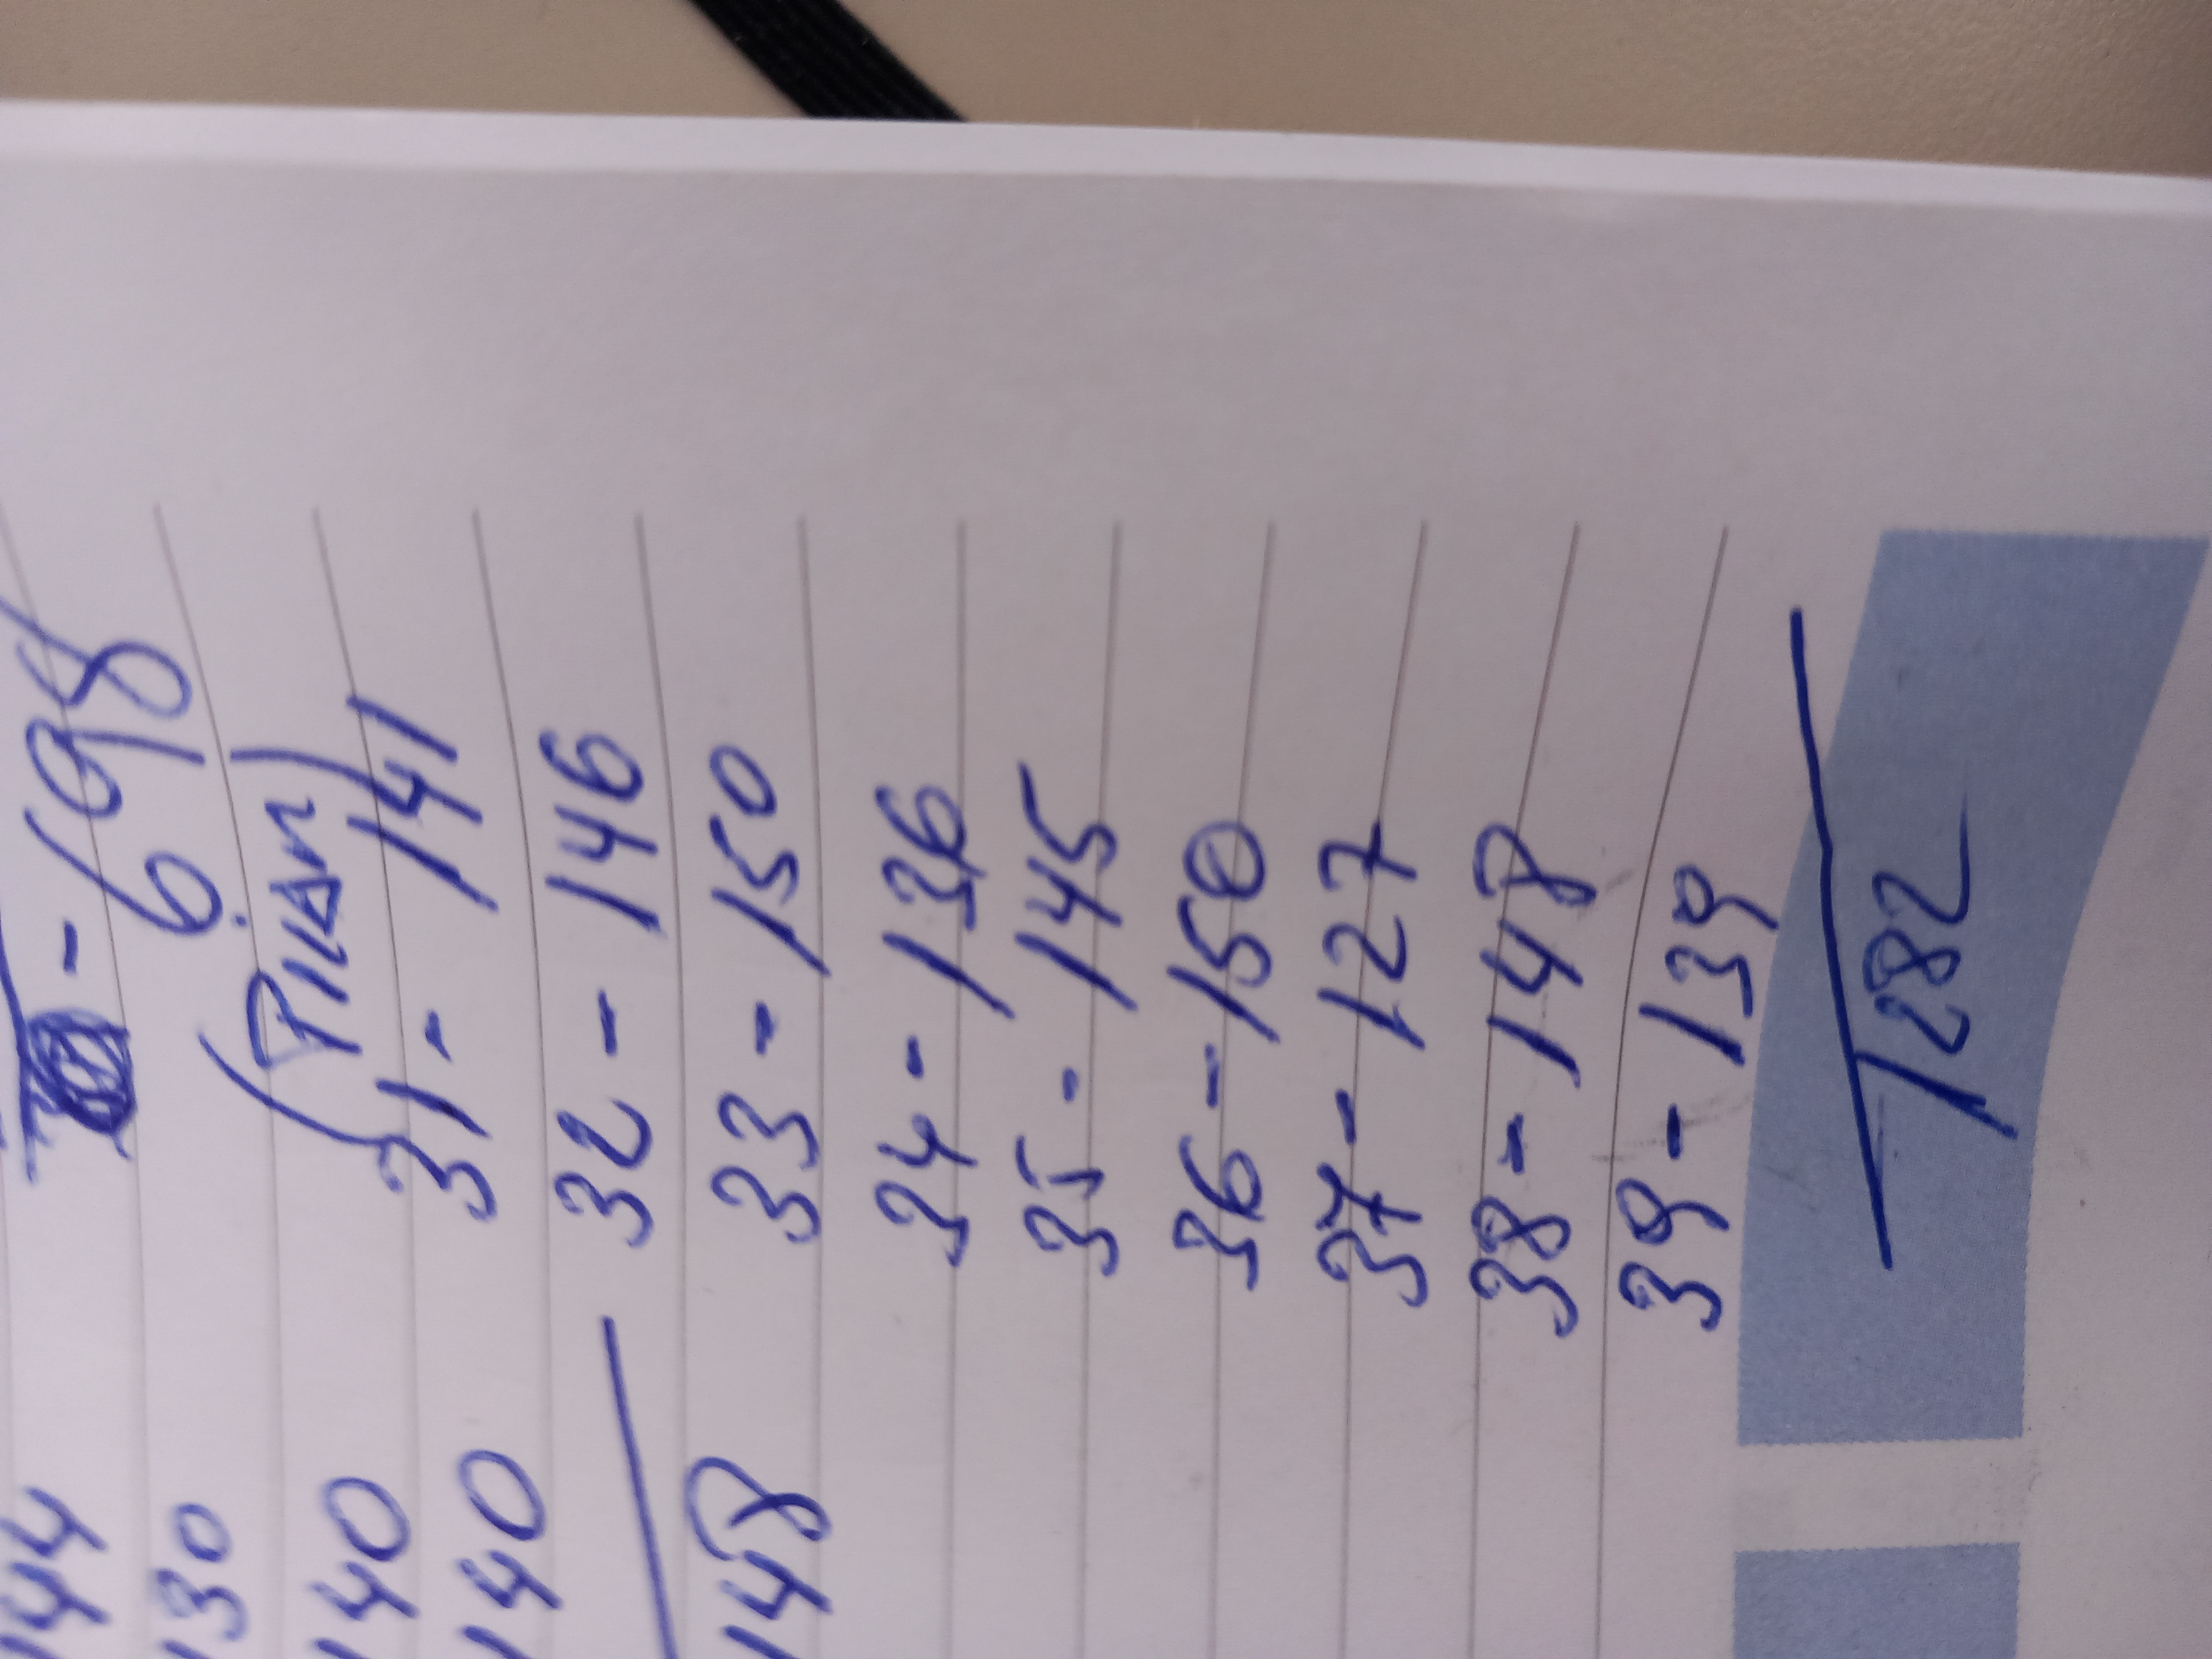 - 698
(Pilar)
31 - 141
32 - 146
33 - 150
34 - 136
35 - 145
36 - 150
37 - 127
38 - 148
39 - 139
1282
144
130
140
140
148